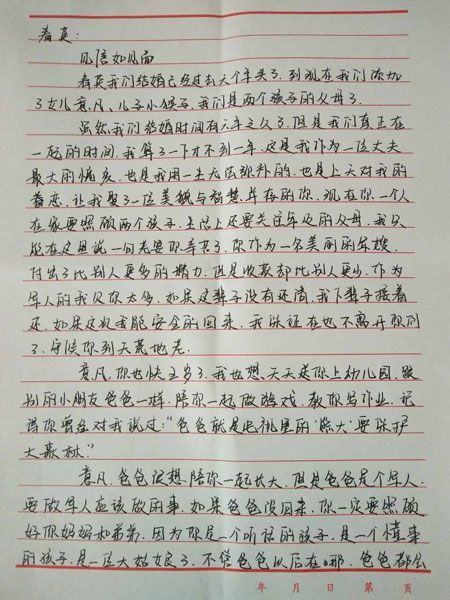 春英:
见信如见面
春英我们结婚已经过去六个年头了.到现在我们添加
了女儿意凡、儿子小侯子.我们是两个孩子的父母了.
虽然我们结婚时间有六年之久了.但是我们真正在
一起的时间.我算了一下才不到一年.这是我作为一位丈夫
最大的愧疚.也是我用一生无法弥补的.也是上天对我的
眷恋.让我娶了一位美貌与智慧并存的你.现在你一个人
在家要照顾两个孩子.生活上还要关注年迈的父母.我只
能在这里说一句老婆你辛苦了.你作为一名美丽的军嫂.
付出了比别人更多的精力.但是收获却比别人更少.作为
军人的我欠你太多.如果这辈子没有还清.我下辈子接着
还.如果这次我能安全的回来.我保证在也不离开你们
了.守候你到天荒地老.
意凡.你也快五岁了.我也想.天天送你上幼儿园.跟
别的小朋友爸爸一样.陪你一起做游戏.教你写作业.记
得你曾经对我说过:"爸爸就是电视里的 熊大 要保护
大森林."
意凡.爸爸很想陪你一起长大.但是爸爸是个军人.
要做军人应该做的事.如果爸爸没回来.你一定要照顾
好你妈妈和弟弟.因为你是一个听话的孩子.是一个懂事
的孩子.是一位大姑娘了.不管爸爸以后在哪.爸爸都会
年 月 日 第 页